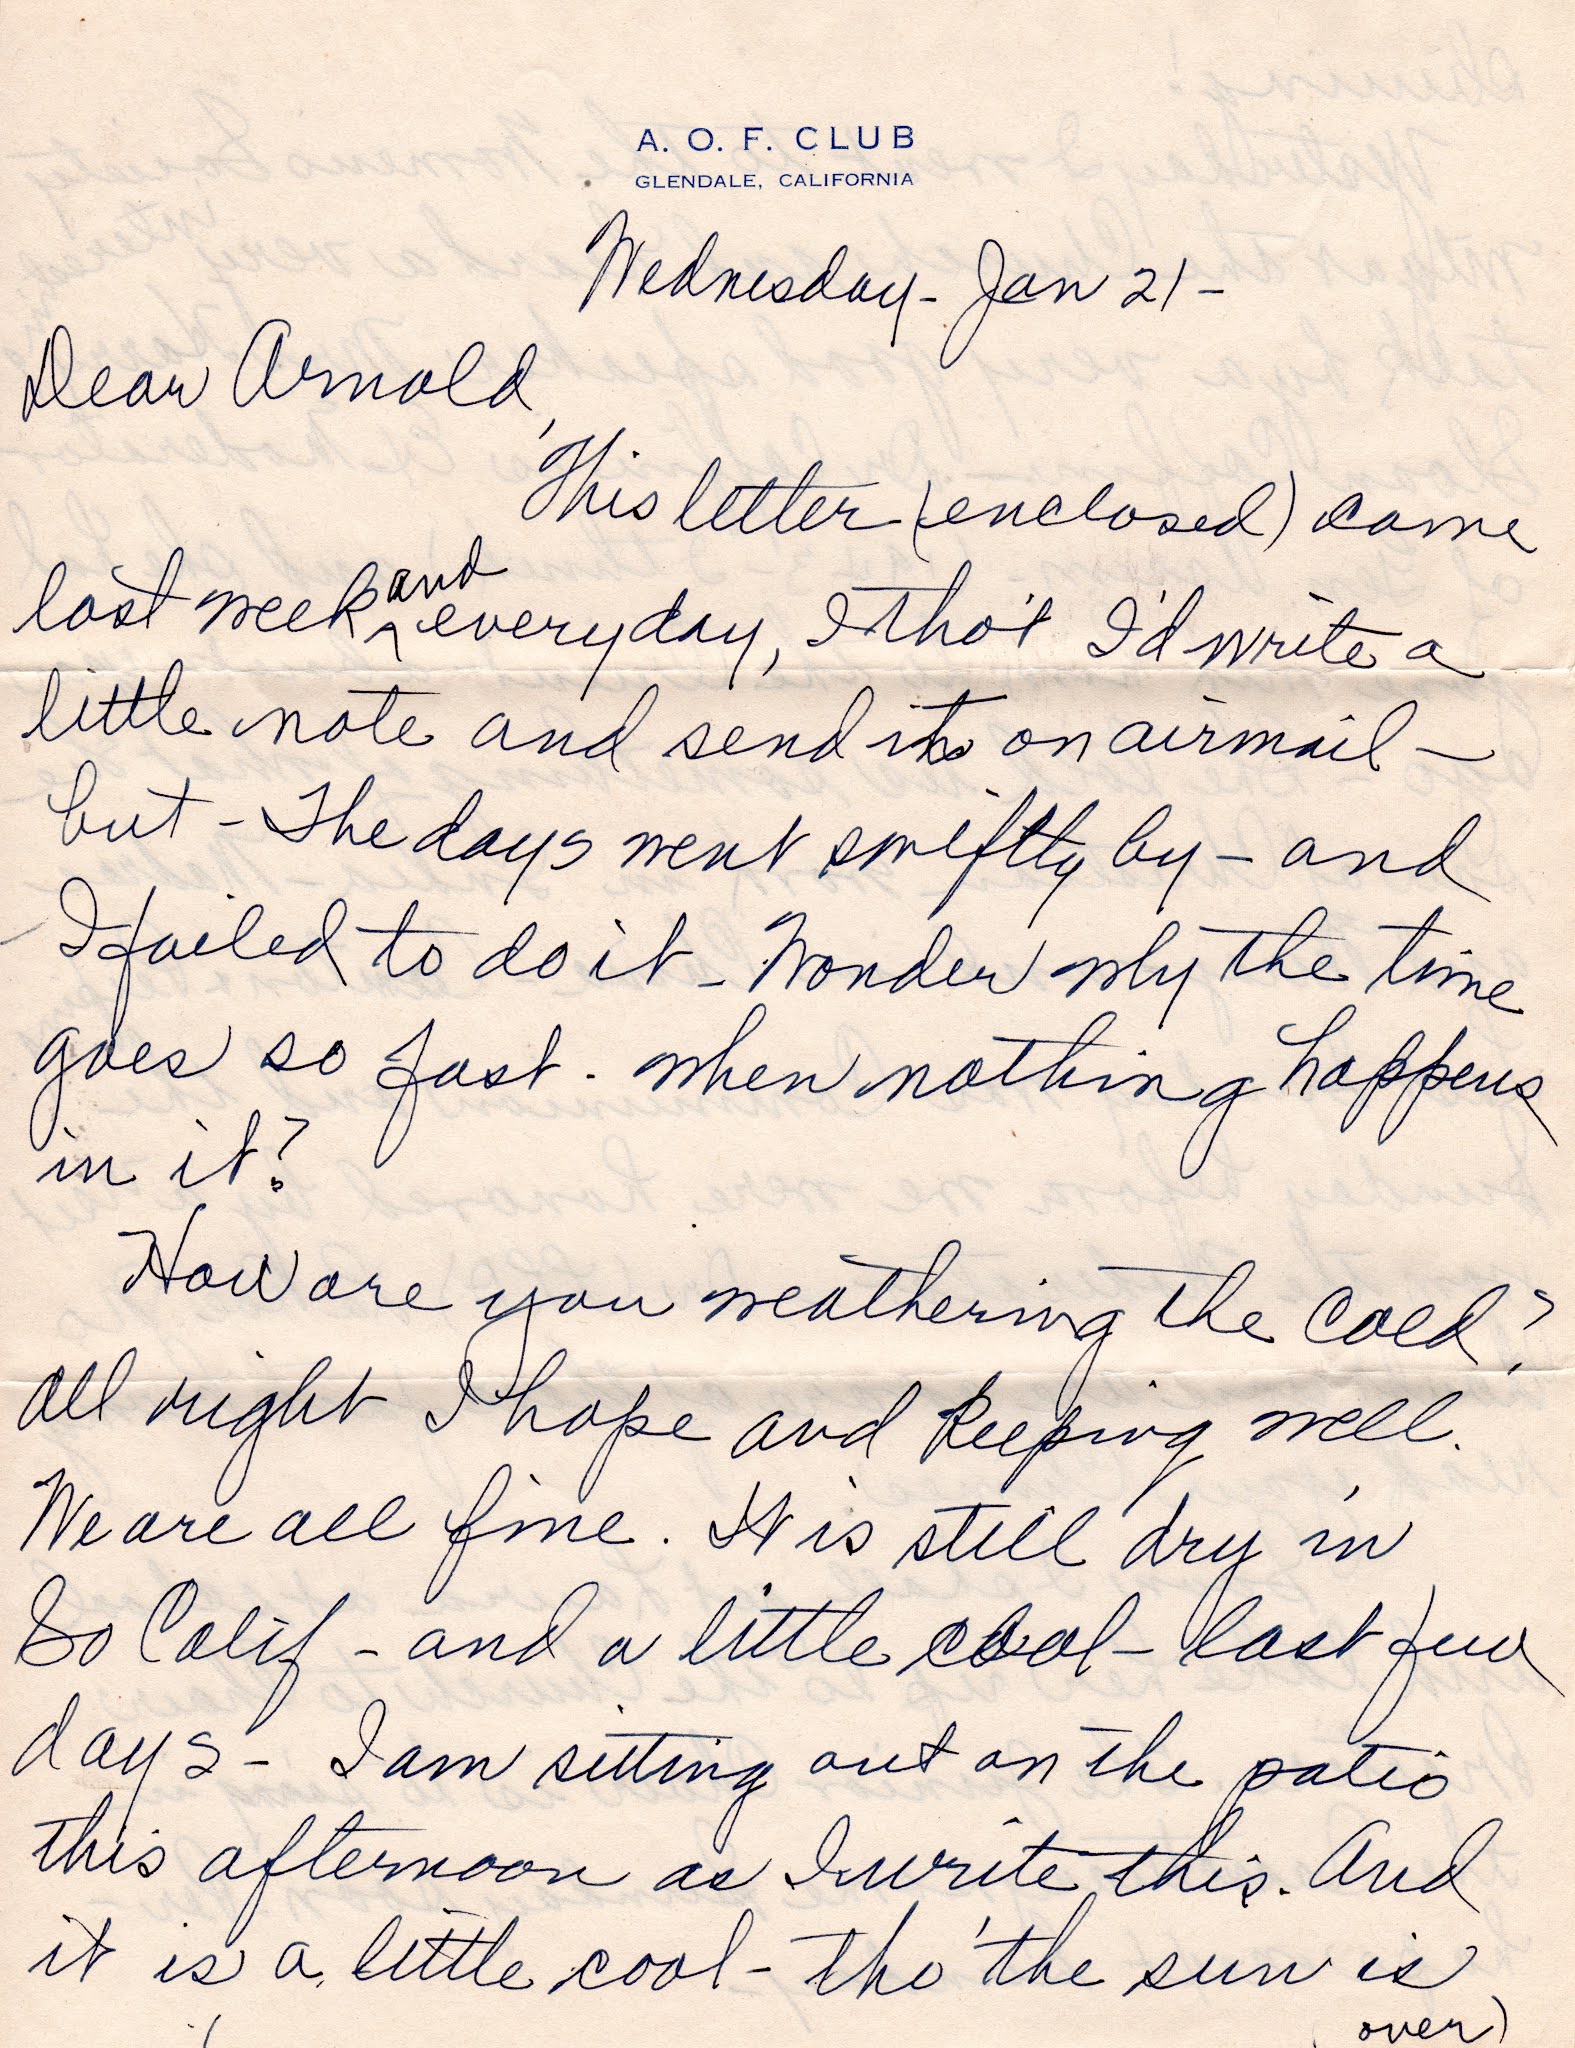 A. O. F. CLUB
GLENDALE, CALIFORNIA
Wednesday - Jan 21 -
Dear Arnold,
This letter (enclosed) came
last week ^and everyday, I tho't I'd write a
little note and send it on airmail -
but - The days went swiftly by - and
I failed to do it - Wonder why the time
goes so fast - when nothing happens
in it?
How are you weathering the cold?
all right I hope and keeping well.
We are all fine. It is still dry in
So Calif - and a little cool - last few
days - I am sitting out on the patio
this afternoon as I write this. And
it is a little cool - tho' the sun is
(over)